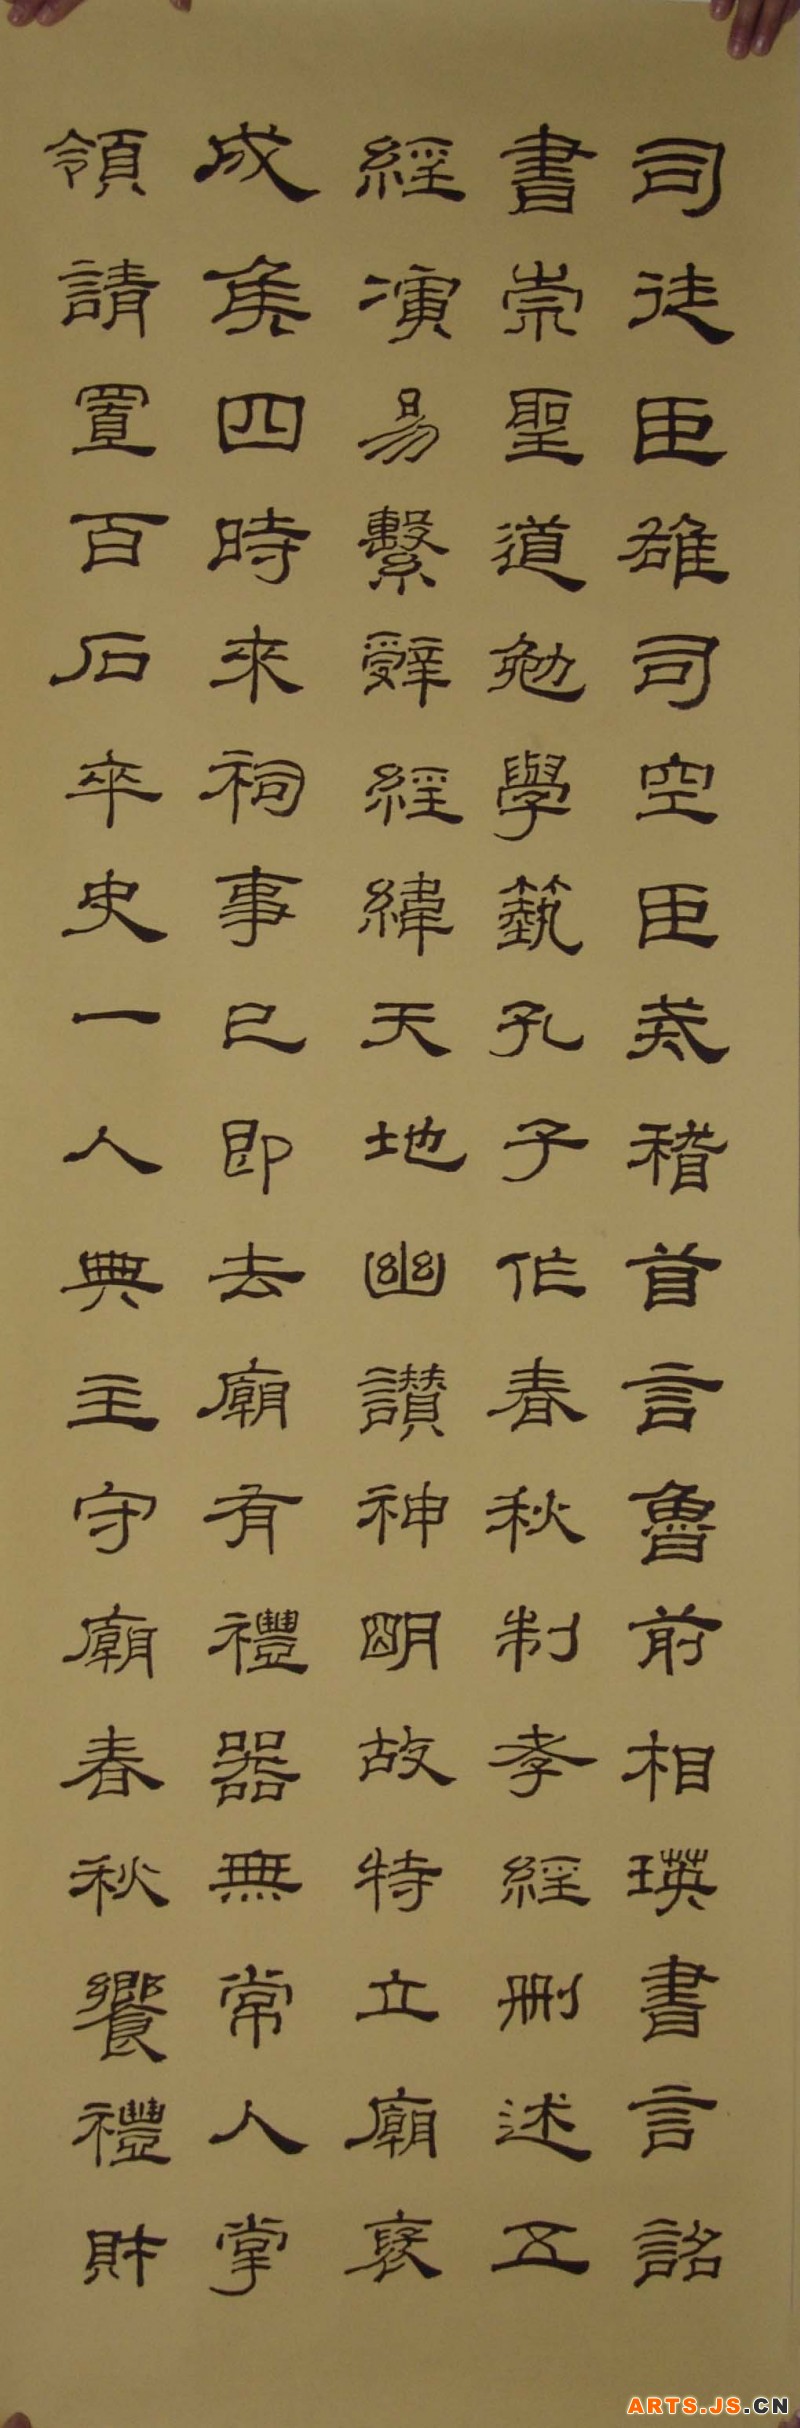 司徒臣雄司空臣戒稽首言魯前相瑛書言詔
書崇聖道勉學藝孔子作春秋制孝經刪述五
經演易繫辭經緯天地幽讚神明故特立廟褒
成矦四時來祠事已即去廟有禮器無常人掌
領請置百石卒史一人典主守廟春秋饗禮財
ARTS.JS.CN